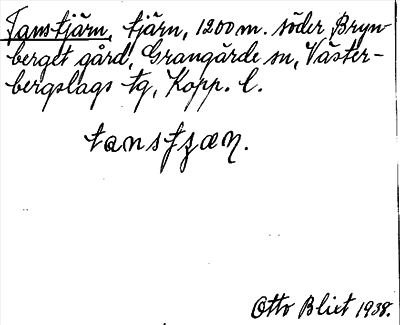 Tanstjärn, tjärn, 1200 m. söder Bryn-
berget gård, Grangärde sn, Väster-
bergslags tg, Kopp. l.
tansfzæn.
Otto Blixt 1938.